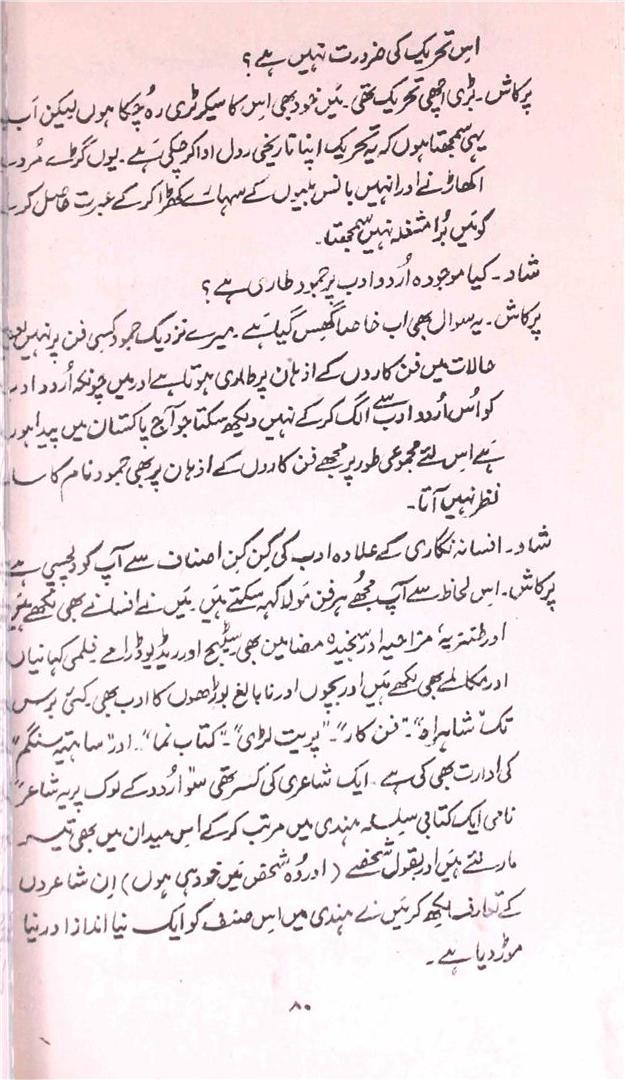 اس تحریک کی ضرورت نہیں ہے؟
پرکاش۔ بڑی اچھی تحریک تھی۔ میَں خود بھی اس کا سیکرٹری رہ چکا ہوں لیکن اَب
یہی سمجھتا ہوں کہ یہ تحریک اپنا تاریخی رول ادا کر چکی ہَے۔ یوں گڑے مُردے
اکھاڑنے اور انہیں بانس بلیوں کے سہارے کھڑا کر کے عبرت حاصل کرنے
کو میَں بُرا مشغلہ نہیں سمجھتا۔
شاد۔ کیا موجودہ اُردو ادب پر جمود طاری ہے؟
پرکاش۔ یہ سوال بھی اب خاصا گھِس گیا ہَے۔ میرے نزدیک جمود کسی فن پر نہیں بعض
حالات میں فن کاروں کے اذہان پر طاری ہوتا ہے اور میں چونکہ اُردو ادب
کو اُس اُردو ادب سے الگ کر کے نہیں دیکھ سکتا جو آج پاکستان میں پیدا ہو رہا
ہَے اس لئے مجموعی طور پر مجھے فن کاروں کے اذہان پر بھی جمود نام کا سایہ
نظر نہیں آتا۔
شاد۔ افسانہ نگاری کے علاوہ ادب کی کِن کِن اصناف سے آپ کو دلچسپی ہے
پرکاش۔ اس لحاظ سے آپ مجھُے ہر فن مَولا کہہ سکتے ہیں۔ میَں نے افسانے بھی لکھے ہَیں
اور طنزیہ، مزاحیہ اور سنجیدہ مضامین بھی۔ سٹیج اور ریڈیو ڈرامے۔ فلمی کہانیاں
اور مکالمے بھی لکھے ہَیں اور بچوں اور نابالغ بوڑھوں کا ادب بھی۔ کئی برس
تک "شاہراہ"۔ "فن کار"۔ "پریت لڑی"۔ "کتاب نما"۔ اور "ساہتیہ سنگم"
کی ادارت بھی کی ہے۔ ایک شاعری کی کسر تھی سو "اُردو کے لوک پریہ شاعر"
نامی ایک کتابی سلسلہ ہندی میں مرتب کر کے اس میدان میں بھی تیر
مار لئے ہَیں اور بقول شخصے (اور وُہ شخص میَں خود ہی ہوں) اِن شاعروں
کے تعارف لکھ کر میَں نے ہندی میں اس صنف کو ایک نیا انداز اور نیا
موڑ دیا ہے۔
۸۰